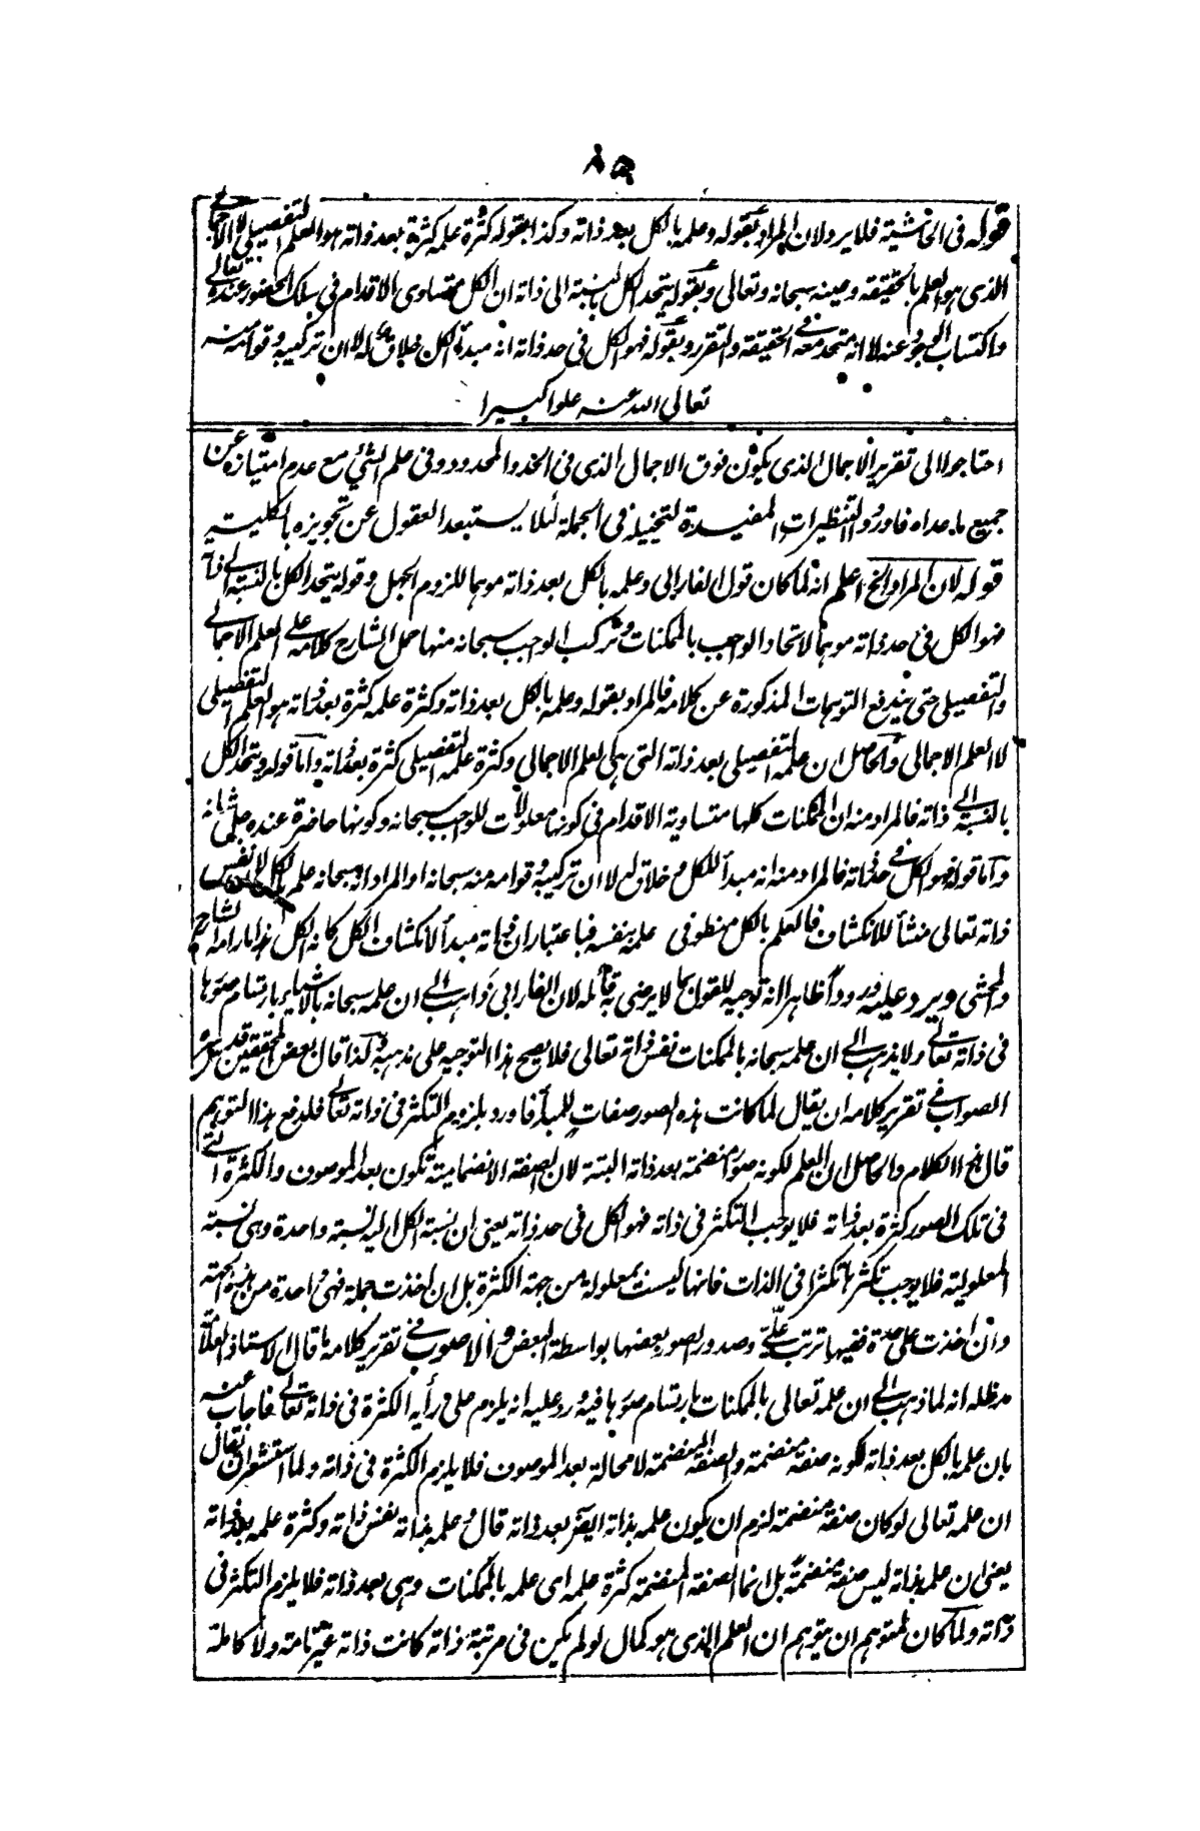 ٨٥
قوله فى الحاشية فلا يرد لان المراد بقوله وعلمه بالكل بعد ذاته وكذا بقوله كثرة علمه كثرة بعد ذاته هو العلم التفصيلى لا الاجمالى
الذى هو العلم بالحقيقة وعينه سبحانه وتعالى وبقوله يتحد الكل بالنسبة الى ذاته ان الكل متساوى الاقدام فى سلك الحضور عنده تعالى
واكتساب الوجود عنه لا انه متحد معه فى الحقيقة والتقرر وبقوله فهو الكل فى حد ذاته انه مبدأ الكل وخلاق له لا ان تركيبه وقوامه منه
تعالى الله عنه علوا كبيرا
احتاجوا الى تقرير الاجمال الذى يكون فوق الاجمال الذى فى الحد والمحدود وفى علم الشئ مع عدم امتيازه عن
جميع ما عداه فاوردوا التنظيرات المفيدة لتخييله فى الجملة لئلا يستبعد العقول عن تجويزه بالكلية
قوله لان المراد الخ اعلم انه لما كان قول الفارابى وعلمه بالكل بعد ذاته موهما للزوم الجهل وقوله يتحد الكل بالنسبة الى ذاته
فهو الكل فى حد ذاته موهما لاتحاد الواجب بالممكنات وتركب الواجب سبحانه منها حمل الشارح كلامه على العلم الاجمالى
والتفصيلى حتى يندفع التوهمات المذكورة عن كلامه فالمراد بقوله وعلمه بالكل بعد ذاته وكثرة علمه كثرة بعد ذاته هو العلم التفصيلى
لا العلم الاجمالى والحاصل ان علمه التفصيلى بعد ذاته التى هى العلم الاجمالى وكثرة علمه التفصيلى كثرة بعد ذاته واما قوله ويتحد الكل
بالنسبة الى ذاته فالمراد منه ان الممكنات كلها متساوية الاقدام فى كونها معلولات للواجب سبحانه وكونها حاضرة عنده جل شانه
واما قوله فهو الكل فى حد ذاته فالمراد منه انه مبدأ للكل وخلاق له لا ان تركيبه وقوامه منه سبحانه او المراد انه سبحانه علم بالكل لان نفس
ذاته تعالى منشأ للانكشاف فالعلم بالكل منطو فى علمه بنفسه فباعتبار ان ذاته مبدأ لانكشاف الكل كانه الكل هذا ما رامه الشارح
والمحشى ويرد عليه ورودا ظاهرا انه توجيه للقول بما لا يرضى به قائله لان الفارابى ذاهب الى ان علمه سبحانه بالاشياء بارتسام صورها
فى ذاته تعالى ولا يذهب الى ان علمه سبحانه بالممكنات نفس ذاته تعالى فلا يصح هذا التوجيه على مذهبه ولذا قال بعض المحققين قدس سره
الصواب فى تقرير كلامه ان يقال لما كانت هذه الصور صفات للمبدأ فاورد بلزوم التكثر فى ذاته تعالى فلدفع هذا التوهم
قال هذا الكلام والحاصل ان العلم لكونه صورا منضمة بعد ذاته البتة لان الصفة الانضمامية تكون بعد الموصوف والكثرة التى
فى تلك الصور كثرة بعد ذاته فلا يوجب التكثر فى ذاته فهو الكل فى حد ذاته يعنى ان نسبة الكل اليه نسبة واحدة وهى نسبة
المعلولية فلا يوجب تكثرها تكثرا فى الذات فانها ليست بمعلولة من جهة الكثرة بل ان اخذت جملة فهى واحدة من هذه الجهة
وان اخذت على حدة ففيها ترتب علّى وصدور الصور بعضها بواسطة البعض والاصوب فى تقرير كلامه ما قال الاستاذ العلامة
مد ظله انه لما ذهب الى ان علمه تعالى بالممكنات بارتسام صورها فيه ورد عليه انه يلزم على رأيه الكثرة فى ذاته تعالى فاجاب عنه
بان علمه بالكل بعد ذاته لكونه صفة منضمة والصفة المنضمة لا محالة بعد الموصوف فلا يلزم الكثرة فى ذاته ولما استشعر ان يقال
ان علمه تعالى لو كان صفة منضمة لزم ان يكون علمه بذاته ايضا بعد ذاته قال وعلمه بذاته نفس ذاته وكثرة علمه بعد ذاته
يعنى ان علمه بذاته ليس صفة منضمة بل انما الصفة المنضمة كثرة علمه اى علمه بالممكنات وهى بعد ذاته فلا يلزم التكثر فى
ذاته ولما كان لمتوهم ان يتوهم ان العلم الذى هو كمال لو لم يكن فى مرتبة ذاته كانت ذاته غير تامة ولا كاملة